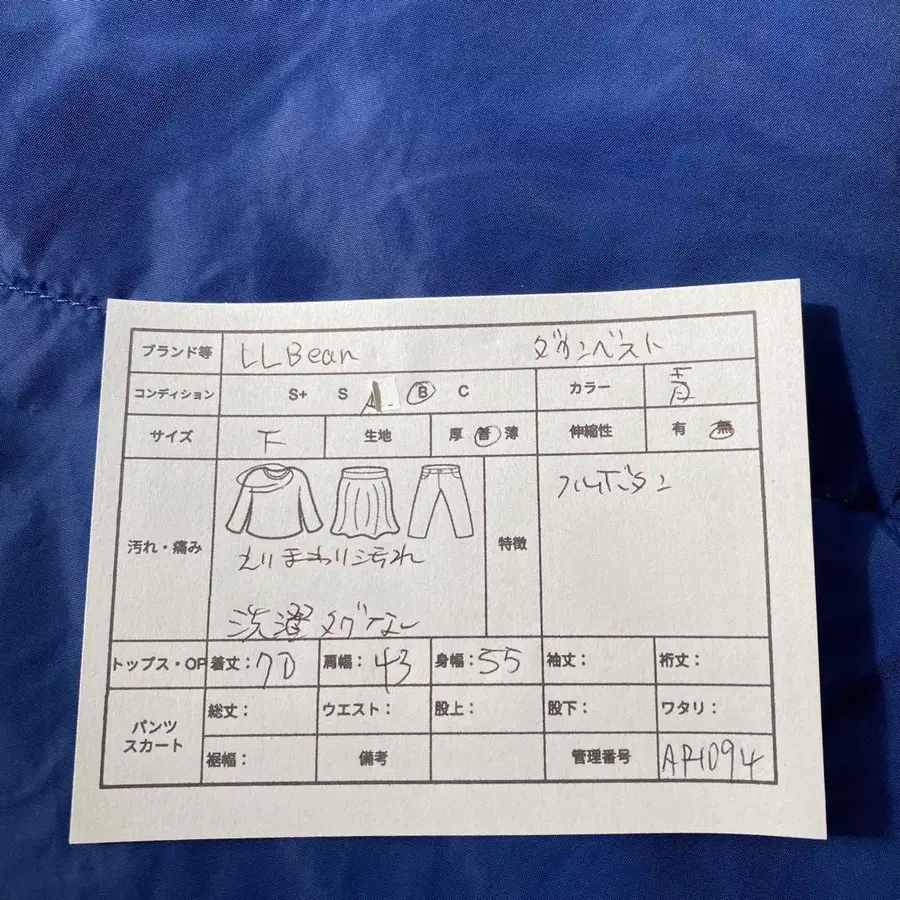 ブランド等 LLBean ダウンベスト
コンディション S+ S A B C カラー 青
サイズ 下 生地 厚 普 薄 伸縮性 有 無
汚れ・痛み えりまわり汚れ 特徴 フルボタン
洗濯タグなし
トップス・OP 着丈：70 肩幅：43 身幅：55 袖丈： 裄丈：
パンツ スカート 総丈： ウエスト： 股上： 股下： ワタリ：
裾幅： 備考 管理番号